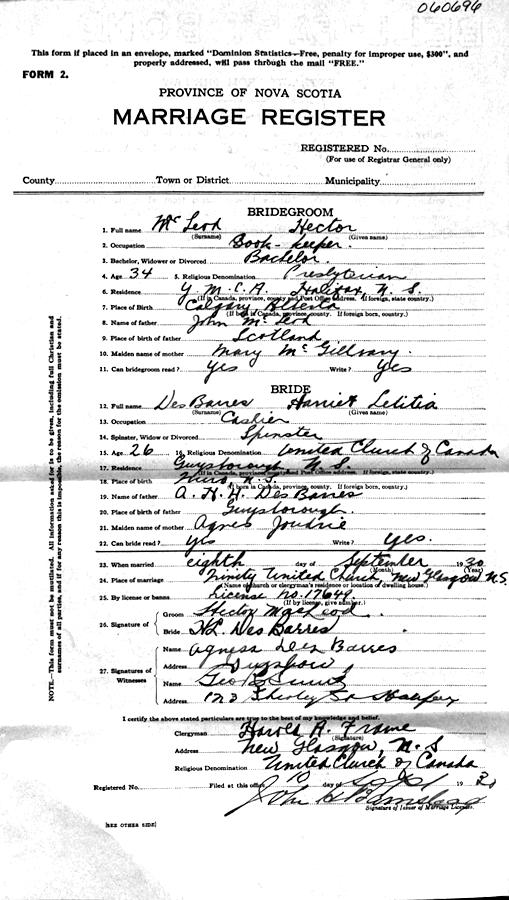 060696
This form if placed in an envelope, marked "Dominion Statistics—Free, penalty for improper use, $300", and
properly addressed, will pass through the mail "FREE."
FORM 2.
PROVINCE OF NOVA SCOTIA
MARRIAGE REGISTER
REGISTERED No.
(For use of Registrar General only)
County Town or District Municipality
BRIDEGROOM
1. Full name McLeod Hector
(Surname) (Given name)
2. Occupation Book-keeper.
3. Bachelor, Widower or Divorced Bachelor.
4. Age 34 5. Religious Denomination Presbyterian
6. Residence Y.M.C.A. Halifax, N.S.
(If in Canada, province, county and Post Office address. If foreign, state country)
7. Place of Birth Calgary Alberta
(If born in Canada, province, county. If foreign born, country)
8. Name of father John McLeod
9. Place of birth of father Scotland
10. Maiden name of mother Mary McGillvary.
11. Can bridegroom read? Yes Write? Yes
BRIDE
12. Full name DesBarres Harriet Letitia
(Surname) (Given name)
13. Occupation Cashier
14. Spinster, Widow or Divorced Spinster
15. Age 26 16. Religious Denomination United Church of Canada
17. Residence Guysborough N.S.
(If in Canada, province, county and Post Office address. If foreign, state country)
18. Place of birth N.S.
(If born in Canada, province, county. If foreign born, country)
19. Name of father A. H. H. DesBarres
20. Place of birth of father Guysborough.
21. Maiden name of mother Agnes Joudrie
22. Can bride read? Yes Write? Yes.
23. When married eighth day of September 1930
(Month) (Year)
24. Place of marriage Trinity United Church, New Glasgow N.S.
(Name of church or clergyman's residence or location of dwelling house.)
25. By license or banns License No. 17649.
(If by license, give number.)
26. Signature of Groom Hector MacLeod
Bride H.L. Des Barres
27. Signatures of Witnesses
Name Agness Des Barres
Address
Name Geo
Address 123 Shirley St Halifax
I certify the above stated particulars are true to the best of my knowledge and belief.
Clergyman Harold A. Frame
(Signature)
Address New Glasgow, N.S
Religious Denomination United Church of Canada
Registered No. Filed at this office 10 day of Sept 1930
John H
Signature of Issuer of Marriage Licenses.
[SEE OTHER SIDE]
NOTE.—This form must not be mutilated. All information asked for is to be given, including full Christian and
surnames of all parties, and if for any reason this is impossible, the reason for the omission must be stated.